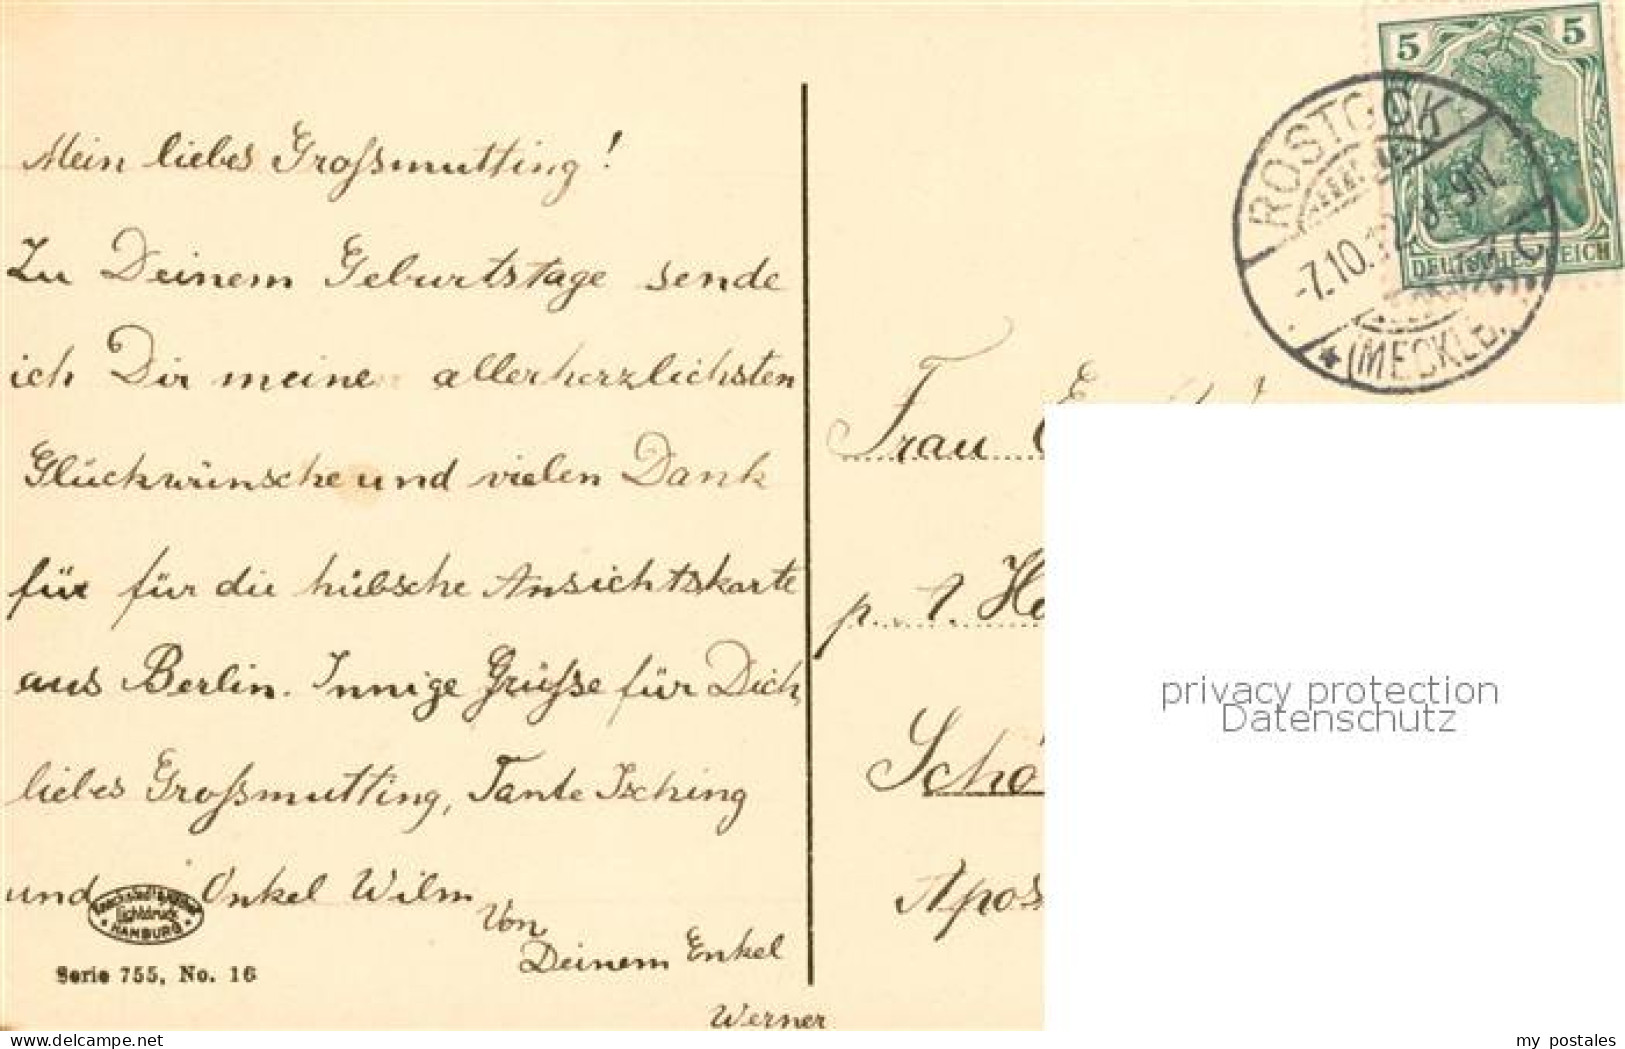 Mein liebes Großmutting!
Zu Deinem Geburtstage sende
ich Dir meine allerherzlichsten
Glückwünsche und vielen Dank
für für die hübsche Ansichtskarte
aus Berlin. Innige Grüße für Dich,
liebes Großmutting, Tante Isching
und Onkel Wilm
Von
Deinem Enkel
Werner
Lichtdruck
HAMBURG
Serie 755, No. 16
5 5
DEUTSCHES REICH
ROSTOCK
-7.10.
8-9N.
* (MECKLB.)
Frau
p. A.
Schö
Apos
privacy protection
Datenschutz
www.delcampe.net
my_postales